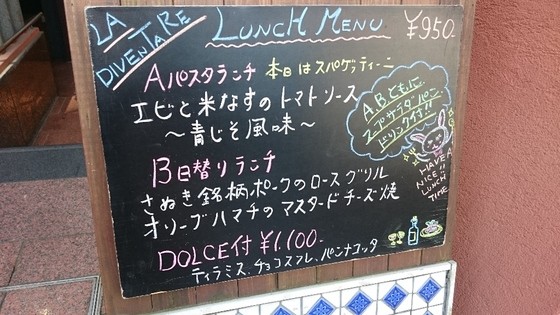 LA
DIVENTARE
LUNCH MENU
¥950-
Aパスタランチ 本日はスパゲッティーニ
エビと米なすのトマトソース
～青じそ風味～
ABともに
スープサラダパン
ドリンク付!!
B日替りランチ
さぬき銘柄ポークのロースグリル
オリーブハマチのマスタードチーズ焼
HAVE A
NICE!!
LUNCH
TIME
DOLCE付 ¥1,100-
ティラミス、チョコスフレ、パンナコッタ